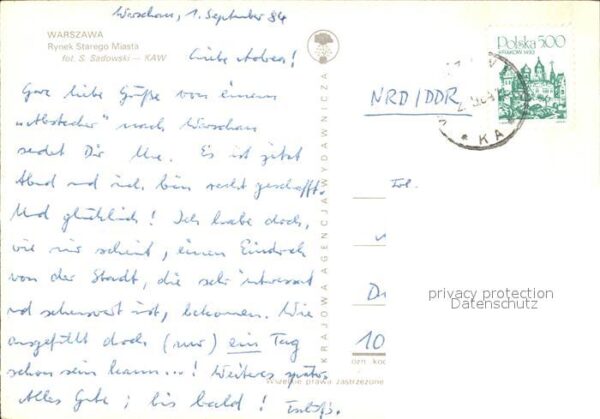 Warschau, 1. September 84
WARSZAWA
Rynek Starego Miasta
fot. S. Sadowski — KAW
Liebe Andrea!
Ganz liebe Grüße von einem
"Abstecher" nach Warschau
sendet Dir Ute. Es ist jetzt
Abend und ich bin recht geschafft.
Und glücklich! Ich habe doch,
wie mir scheint, einen Eindruck
von der Stadt, die sehr interessant
und sehenswert ist, bekommen. Wie
ausgefüllt doch (nur) ein Tag
schon sein kann...! Weiteres später.
Alles Gute; bis bald!
KRAJOWA AGENCJA WYDAWNICZA
Polska 500
NRD/DDR
KA
Frl.
10
Wszelkie prawa zastrzeżone
privacy protection
Datenschutz